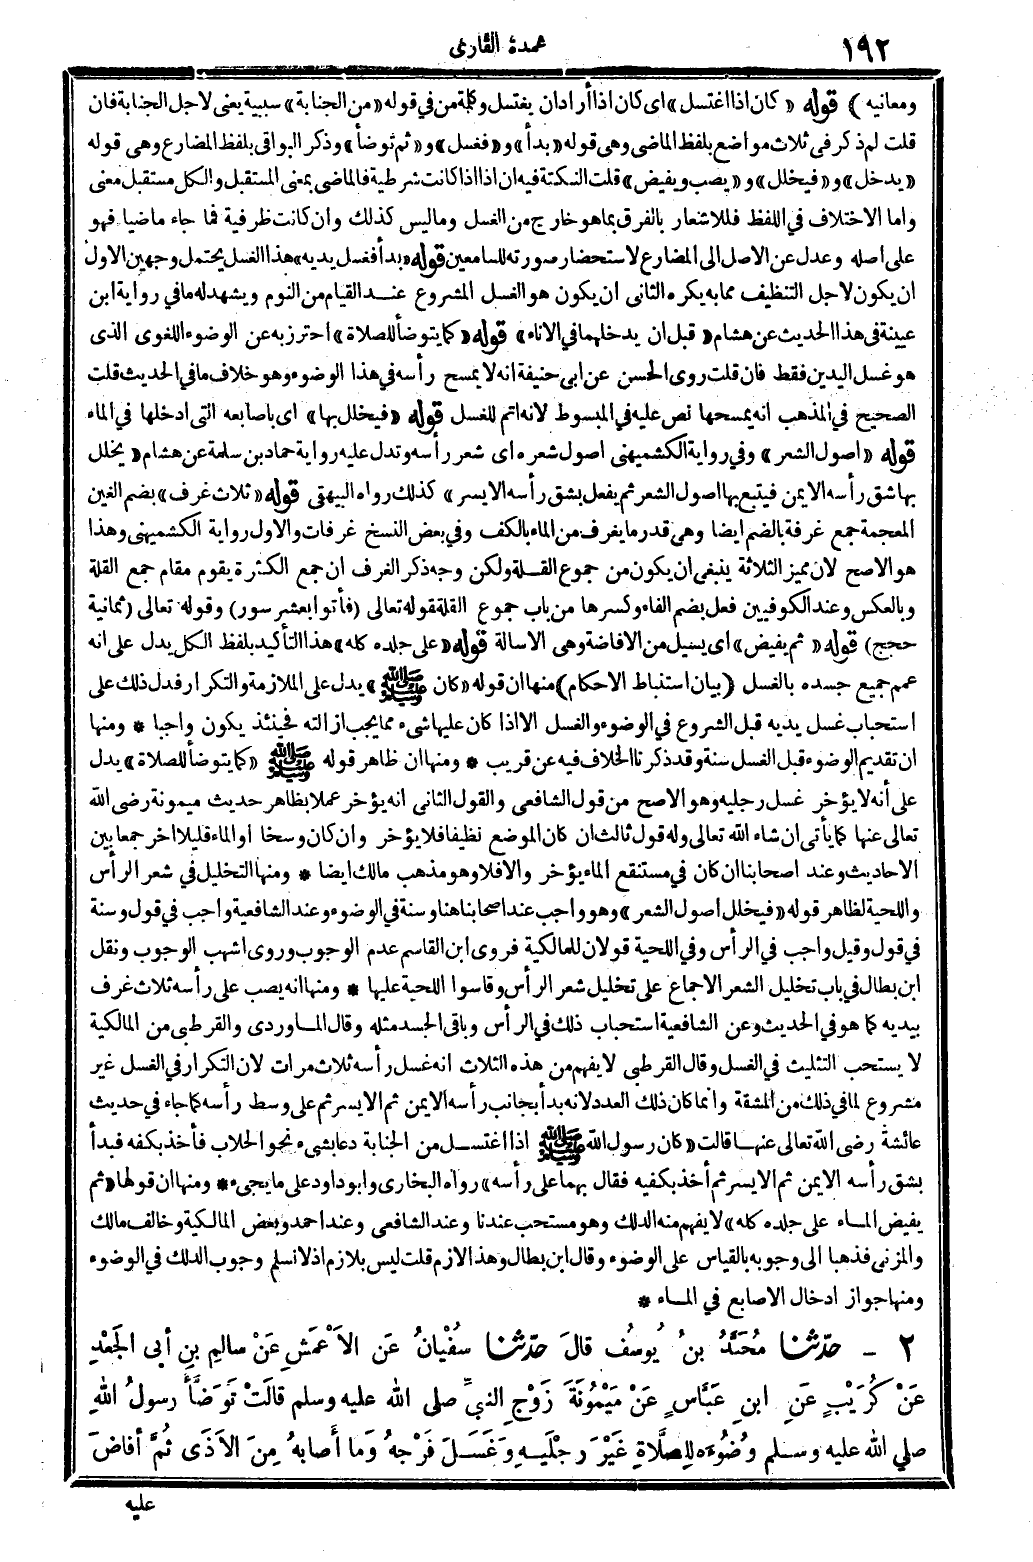 ١٩٢
عمدة القارئ
ومعانيه) قوله «كان اذا اغتسل» اى كان اذا أراد ان يغتسل وكلمة من في قوله «من الجنابة» سببية يعنى لاجل الجنابة فان
قلت لم ذكر فى ثلاث مواضع بلفظ الماضى وهى قوله «بدأ» و«فغسل» و«ثم توضأ» وذكر البواقى بلفظ المضارع وهى قوله
«يدخل» و«فيخلل» و«يصب ويفيض» قلت النكتة فيه ان اذا اذا كانت شرطية فالماضى بمعنى المستقبل والكل مستقبل معنى
واما الاختلاف في اللفظ فللاشعار بالفرق بما هو خارج من الغسل وما ليس كذلك وان كانت ظرفية فما جاء ماضيا فهو
على اصله وعدل عن الاصل الى المضارع لاستحضار صورته للسامعين قوله «بدأ فغسل يديه» هذا الغسل يحتمل وجهين الاول
ان يكون لاجل التنظيف مما به يكره الثانى ان يكون هو الغسل المشروع عند القيام من النوم ويشهد له ما في رواية ابن
عيينة فى هذا الحديث عن هشام «قبل ان يدخلهما في الاناء» قوله «كما يتوضأ للصلاة» احترز به عن الوضوء اللغوى الذى
هو غسل اليدين فقط فان قلت روى الحسن عن ابى حنيفة انه لا يمسح رأسه في هذا الوضوء وهو خلاف ما في الحديث قلت
الصحيح في المذهب انه يمسحها نص عليه في المبسوط لانه اتم للغسل قوله «فيخلل بها» اى باصابعه التى ادخلها في الماء
قوله «اصول الشعر» وفي رواية الكشميهنى اصول شعره اى شعر رأسه وتدل عليه رواية حماد بن سلمة عن هشام «يخلل
بها شق رأسه الايمن فيتبع بها اصول الشعر ثم يفعل بشق رأسه الايسر» كذلك رواه البيهقى قوله «ثلاث غرف» بضم الغين
المعجمة جمع غرفة بالضم ايضا وهى قدر ما يغرف من الماء بالكف وفي بعض النسخ غرفات والاول رواية الكشميهنى وهذا
هو الاصح لان مميز الثلاثة ينبغى ان يكون من جموع القلة ولكن وجه ذكر الغرف ان جمع الكثرة يقوم مقام جمع القلة
وبالعكس وعند الكوفيين فعل بضم الفاء وكسرها من باب جموع القلة قوله تعالى (فأتوا بعشر سور) وقوله تعالى (ثمانية
حجج) قوله «ثم يفيض» اى يسيل من الافاضة وهى الاسالة قوله «على جلده كله» هذا التأكيد بلفظ الكل يدل على انه
عمم جميع جسده بالغسل (بيان استنباط الاحكام) منها ان قوله «كان ﷺ» يدل على الملازمة والتكرار فدل ذلك على
استحباب غسل يديه قبل الشروع في الوضوء والغسل الا اذا كان عليها شىء مما يجب ازالته فحينئذ يكون واجبا * ومنها
ان تقديم الوضوء قبل الغسل سنة وقد ذكرنا الخلاف فيه عن قريب * ومنها ان ظاهر قوله ﷺ «كما يتوضأ للصلاة» يدل
على أنه لا يؤخر غسل رجليه وهو الاصح من قول الشافعى والقول الثانى انه يؤخر عملا بظاهر حديث ميمونة رضى الله
تعالى عنها كما يأتى ان شاء الله تعالى وله قول ثالث ان كان الموضع نظيفا فلا يؤخر وان كان وسخا او الماء قليلا اخر جمعا بين
الاحاديث وعند اصحابنا ان كان في مستنقع الماء يؤخر والا فلا وهو مذهب مالك ايضا * ومنها التخليل في شعر الرأس
واللحية لظاهر قوله «فيخلل اصول الشعر» وهو واجب عند اصحابنا هنا وسنة في الوضوء وعند الشافعية واجب في قول وسنة
في قول وقيل واجب في الرأس وفي اللحية قولان للمالكية فروى ابن القاسم عدم الوجوب وروى اشهب الوجوب ونقل
ابن بطال في باب تخليل الشعر الاجماع على تخليل شعر الرأس وقاسوا اللحية عليها * ومنها انه يصب على رأسه ثلاث غرف
بيديه كما هو في الحديث وعن الشافعية استحباب ذلك في الرأس وباقى الجسد مثله وقال الماوردى والقرطبى من المالكية
لا يستحب التثليث في الغسل وقال القرطبى لا يفهم من هذه الثلاث انه غسل رأسه ثلاث مرات لان التكرار في الغسل غير
مشروع لما في ذلك من المشقة وانما كان ذلك العدد لانه بدأ بجانب رأسه الايمن ثم الايسر ثم على وسط رأسه كما جاء في حديث
عائشة رضى الله تعالى عنها قالت «كان رسول الله ﷺ اذا اغتسل من الجنابة دعا بشىء نحو الحلاب فأخذ بكفه فبدأ
بشق رأسه الايمن ثم الايسر ثم أخذ بكفيه فقال بهما على رأسه» رواه البخارى وابو داود على ما يجىء * ومنها ان قولها «ثم
يفيض الماء على جلده كله» لا يفهم منه الدلك وهو مستحب عندنا وعند الشافعى وعند احمد وبعض المالكية وخالف مالك
والمزنى فذهبا الى وجوبه بالقياس على الوضوء وقال ابن بطال وهذا لازم قلت ليس بلازم اذ لا نسلم وجوب الدلك في الوضوء
ومنها جواز ادخال الاصابع في الماء *
٢ - حدّثنا مُحَمَّدُ بنُ يُوسُفَ قالَ حدّثنا سُفْيانُ عَنِ الأَعْمَشِ عَنْ سالِمِ بنِ أبى الجَعْدِ
عَنْ كُرَيْبٍ عَنِ ابنِ عَبَّاسٍ عَنْ مَيْمُونَةَ زَوْجِ النبيِّ صلى الله عليه وسلم قالَتْ تَوَضَّأَ رسولُ اللهِ
صلي الله عليه وسلم وُضُوءَه لِلصَّلاةِ غَيْرَ رِجْلَيهِ وَغَسَلَ فَرْجهُ وَما أصابهُ مِنَ الأذَى ثُمَّ أفاضَ
عليه